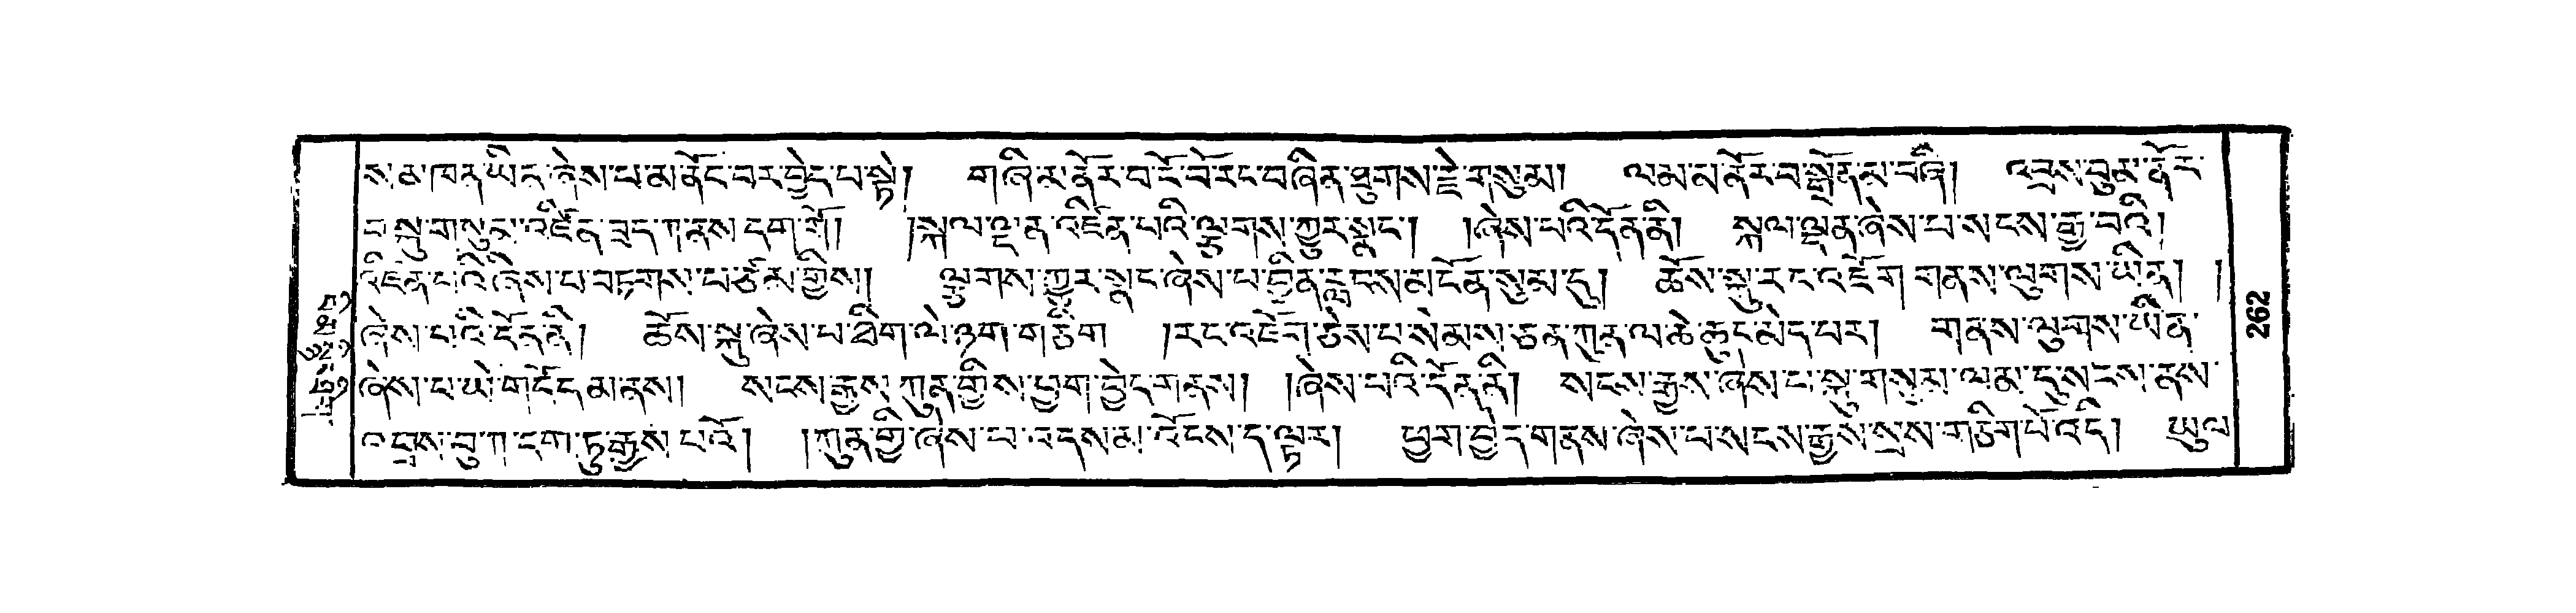 ས་མ་ཁན་ཡིན་ཞེས་པ་མ་ནོང་བར་བྱེད་པ་སྟེ། གཞི་མ་ནོར་བ་ངོ་བོ་རང་བཞིན་ཐུགས་རྗེ་གསུམ། ལམ་མ་ནོར་བ་སྒྲོན་མ་བཞི། འབྲས་བུ་མ་ནོར་
བ་སྐུ་གསུམ་འཛིན་བྱད་ཀ་ནས་དག་གོ །སྐལ་ལྡན་འཛིན་པའི་ལྕགས་ཀྱུར་སྣང་། །ཞེས་པའི་དོན་ནི། སྐལ་ལྡན་ཞེས་པ་སངས་རྒྱ་བའི།
འཛིན་པའི་ཞེས་པ་བཏགས་པ་ཙམ་གྱིས། ལྕགས་ཀྱུར་སྣང་ཞེས་པ་བྱིན་རླབས་མངོན་སུམ་དུ། ཆོས་སྐུ་རང་འཇོག་གནས་ལུགས་ཡིན། །
ཞེས་པའི་དོན་ནི། ཆོས་སྐུ་ཞེས་པ་ཐིག་ལེ་ཉག་གཅིག །རང་འཇོག་ཅེས་པ་སེམས་ཅན་ཀུན་ལ་ཆེ་ཆུང་མེད་པར། གནས་ལུགས་ཡིན་
ཞེས་པ་ཡེ་གདོད་མ་ནས། སངས་རྒྱས་ཀུན་གྱིས་ཕྱག་བྱེད་གནས། །ཞེས་པའི་དོན་ནི། སངས་རྒྱས་ཞེས་པ་སྐུ་གསུམ་ལམ་དུ་སངས་ནས་
འབྲས་བུ་ཀ་དག་ཏུ་རྒྱས་པའོ། །ཀུན་གྱི་ཞེས་པ་འདས་མ་འོངས་ད་ལྟར། ཕྱག་བྱེད་གནས་ཞེས་པ་སངས་རྒྱས་སྲས་གཅིག་པོ་འདི། ཡུལ
262